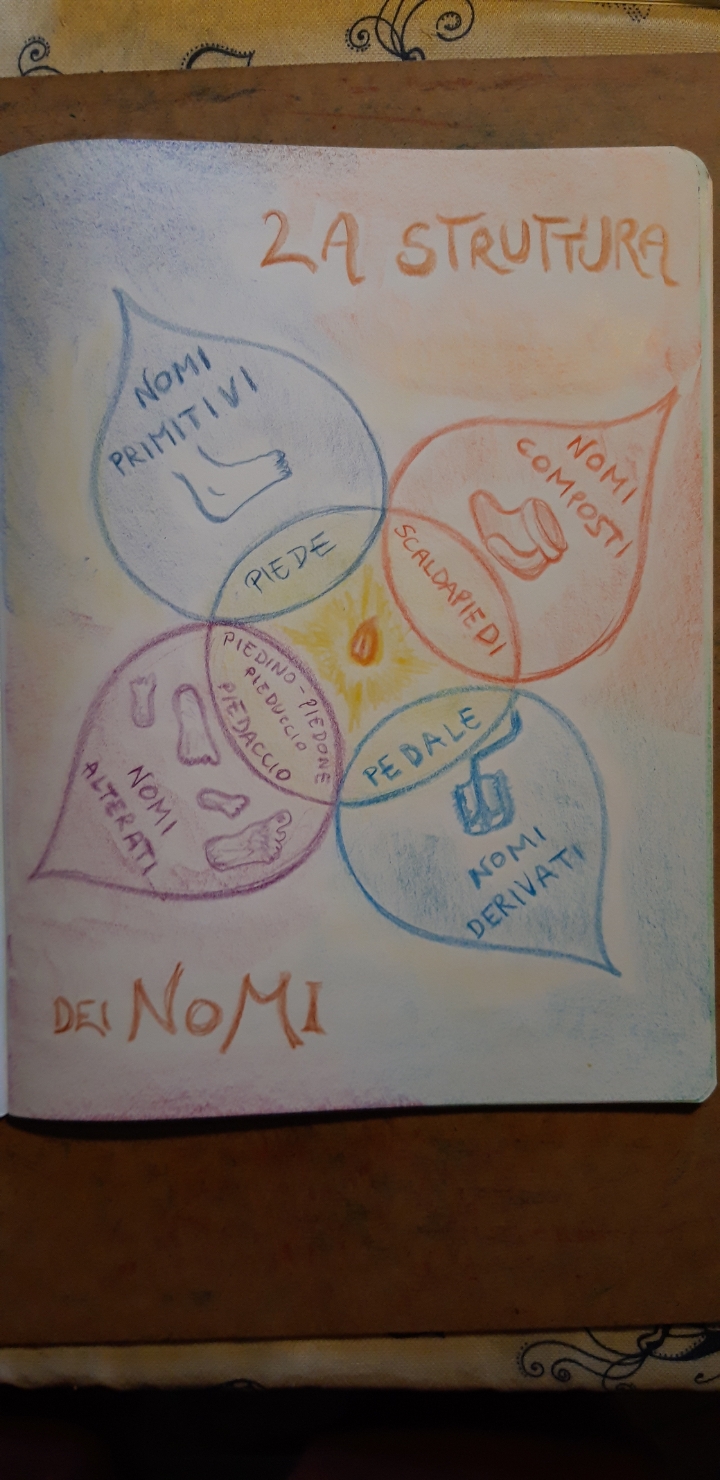 LA STRUTTURA
NOMI
PRIMITIVI
PIEDE
NOMI
COMPOSTI
SCALDAPIEDI
PIEDINO - PIEDONE
PIEDUCCIO
PIEDACCIO
NOMI
ALTERATI
PEDALE
NOMI
DERIVATI
DEI NOMI